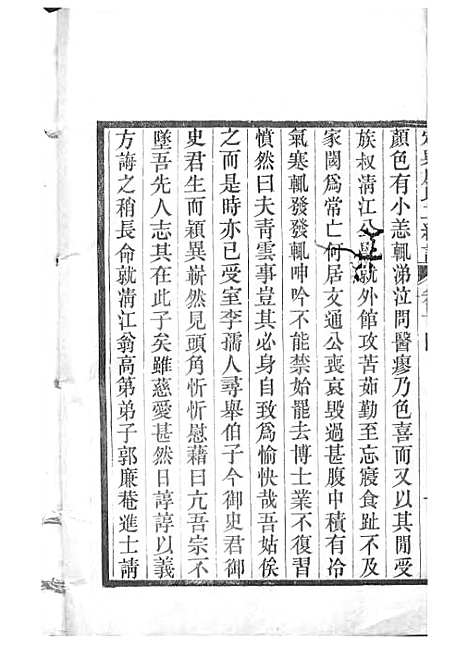 顔色有小恙輒涕泣問醫廖乃色喜而又以其閒受
族叔淸江公學就外館攻苦茹勤至忘寢食趾不及
家閾爲常亡何居文通公喪哀毀過甚腹中積有冷
氣寒輒發發輒呻吟不能禁始罷去博士業不復習
憤然曰夫靑雲事豈其必身自致爲愉快哉吾姑俟
之而是時亦已受室李孺人尋舉伯子今御史君御
史君生而穎異嶄然見頭角忻忻慰藉曰亢吾宗不
墜吾先人志其在此子矣雖慈愛甚然日諄諄以義
方誨之稍長命就淸江翁高第弟子郭廉菴進士請